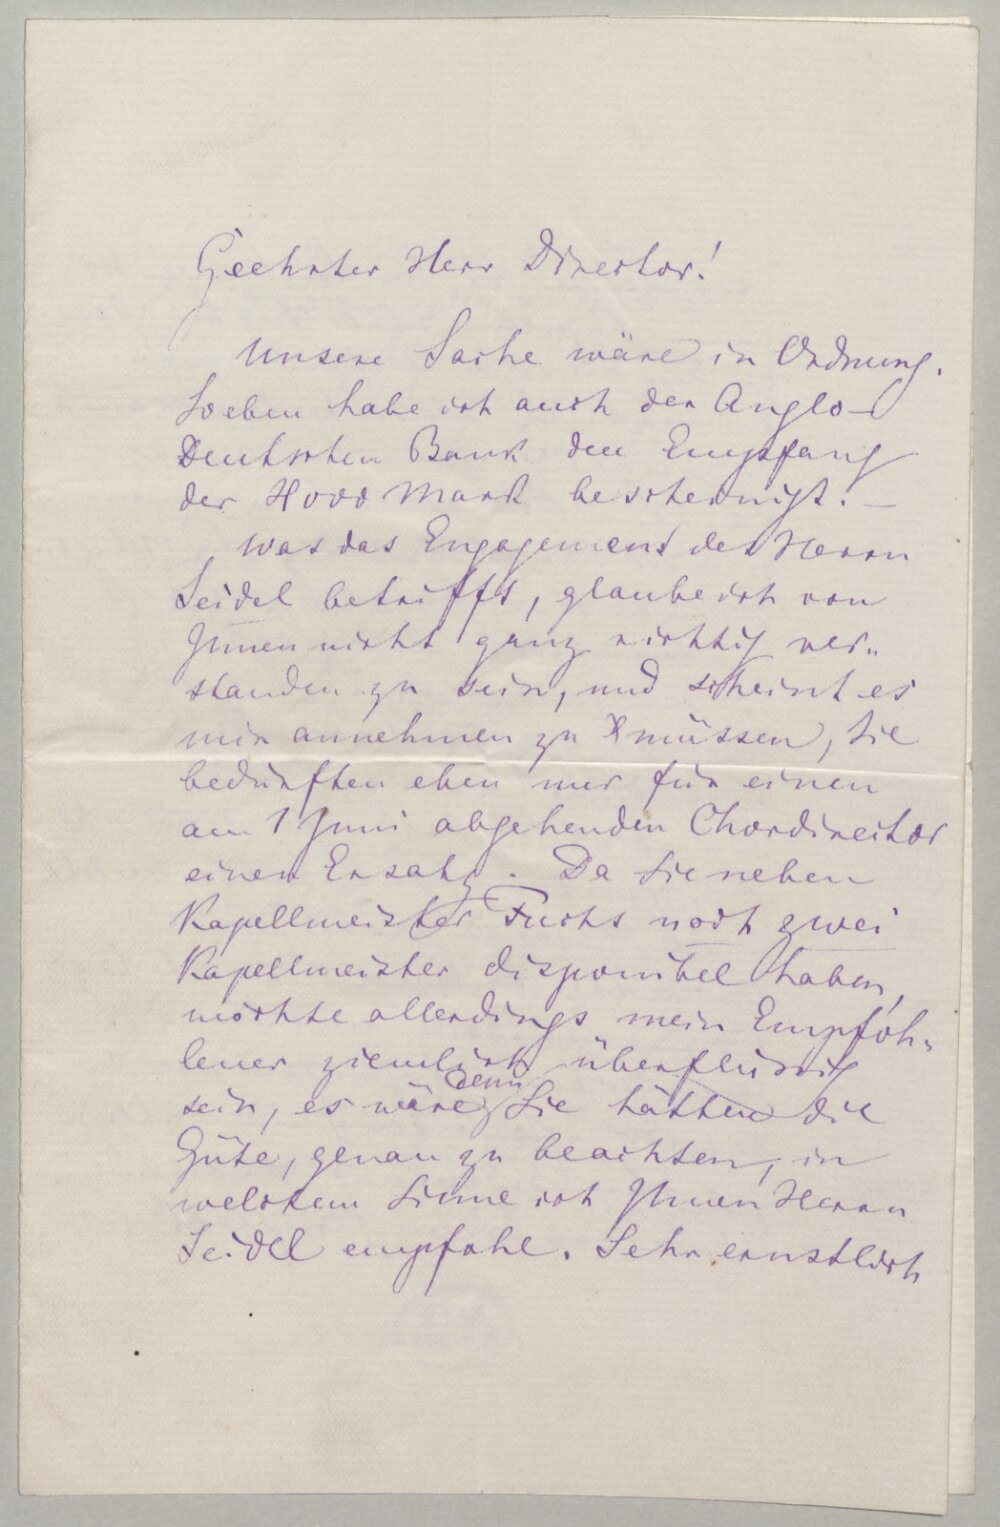 Geehrter Herr Director!
Unsere Sache wäre in Ordnung.
Soeben habe ich auch der Anglo-
Deutschen Bank den Empfang
der 4000 Mark bescheinigt. —
Was das Engagement des Herrn
Seidel betrifft, glaube ich von
Ihnen nicht ganz richtig ver-
standen zu sein, und scheint es
mir annehmen zu müssen, Sie
bedürften eben nur für einen
am 1 Juni abgehenden Chordirector
einen Ersatz. Da Sie neben
Kapellmeister Fuchs noch zwei
Kapellmeister disponibel haben,
möchte allerdings mein Empfoh-
lener ziemlich überflüssig
sein, es wäre denn Sie hätten die
Güte, genau zu beachten, in
welchem Sinne ich Ihnen Herrn
Seidel empfahl. Sehr ernstlich